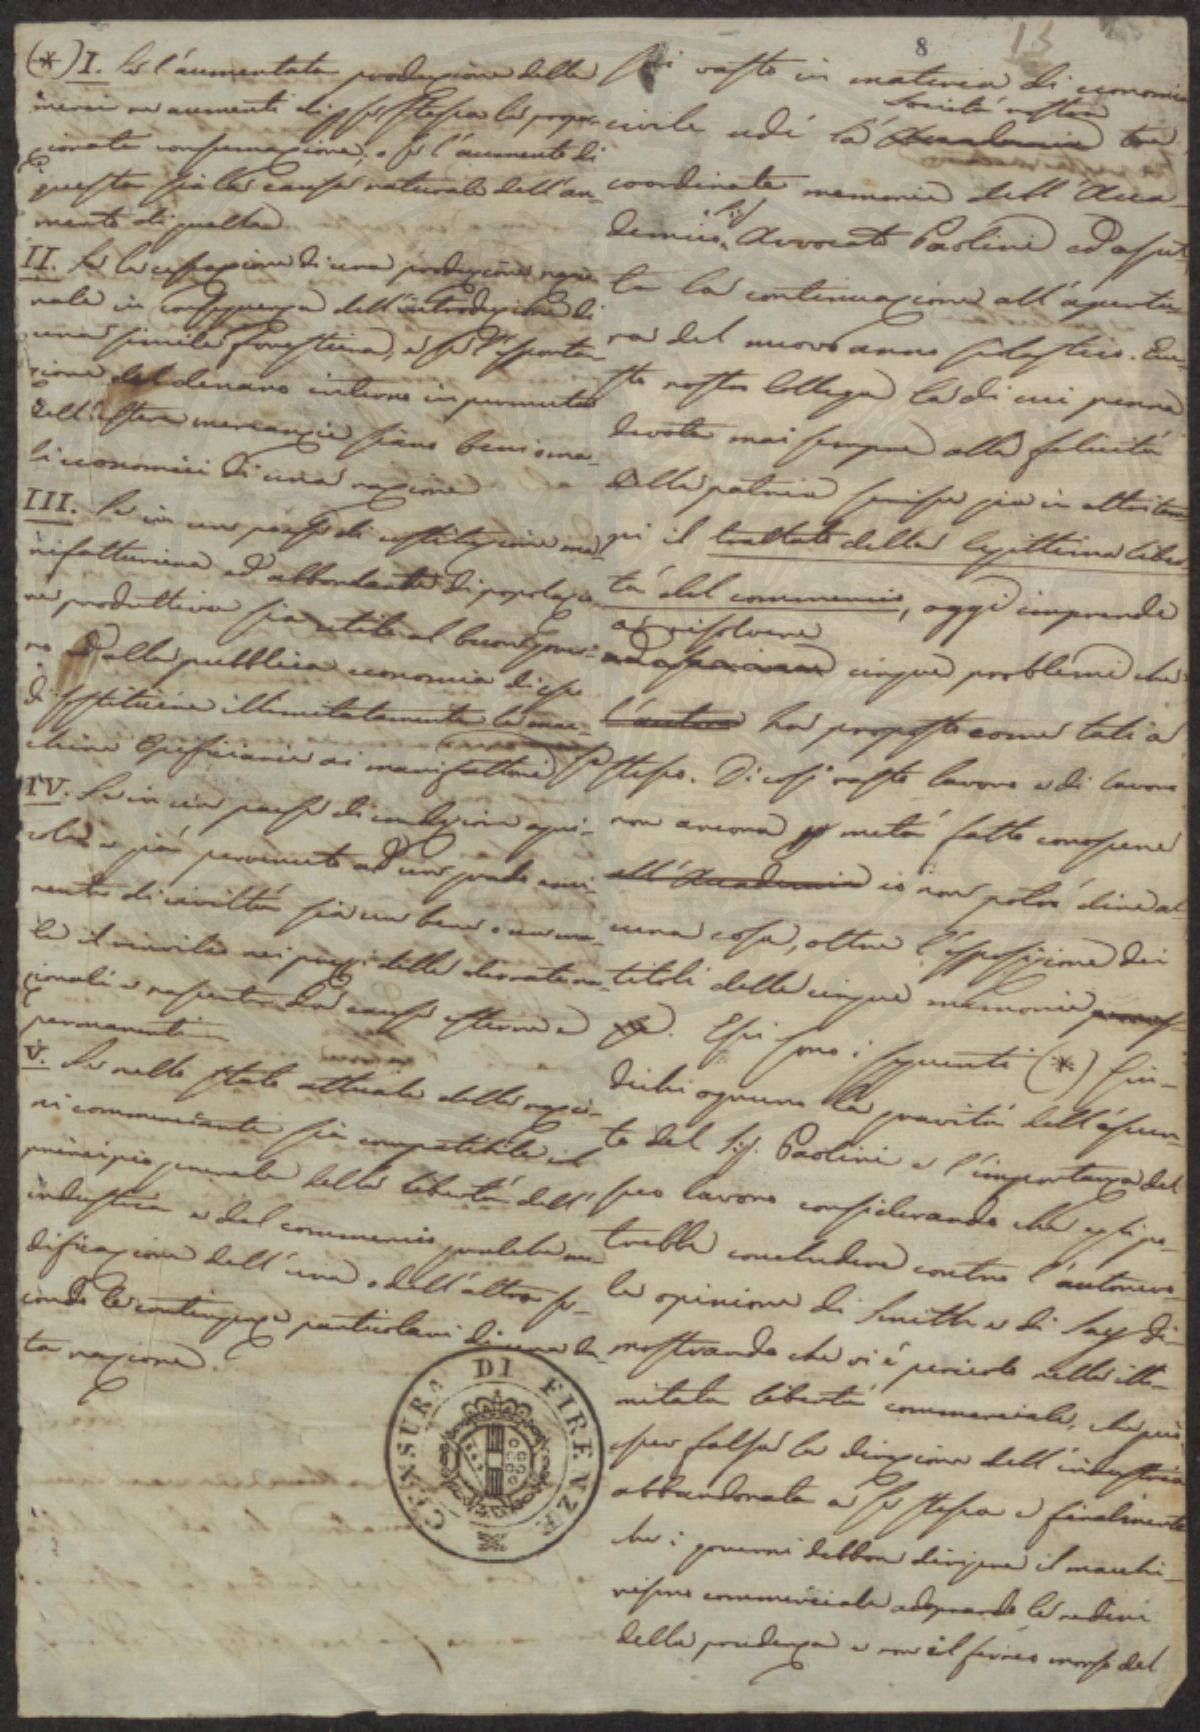 8
13
(*) I. Se l'aumentata produzione delle
merci ne aumenti di per se stessa la propor-
zionata consumazione, o se l'aumento di
questa sia la causa naturale dell'au-
mento di quella
II. Se la cessazione di una produzione nazio-
nale in conseguenza dell'introduzione di
una simile forestiera, e se l'esporta-
zione del denaro interno in permuta
dell'estera mercanzia siano beni o ma-
li economici di una nazione
III. Se in un paese di costituzione ma-
nifatturiera ed abbondante di popolazio-
ne produttiva sia utile al buon gover-
no ed alla pubblica economia di esso
di sostituire illimitatamente le mac-
chine opificiarie ai manifattori
IV. Se in un paese di condizione agri-
cola e già pervenuto ad un grado emi-
nente di civiltà sia un bene o un ma-
le il rinvilio nei prezzi delle derrate na-
zionali e nascente da cause esterne e
permanenti
V. Se nello stato attuale delle nazio-
ni commercianti sia compatibile col
principio generale della libertà dell'
industria e del commercio qualche mo-
dificazione dell'una o dell'altro se-
condo le contingenze particolari di una da-
ta nazione.
CENSURA DI FIRENZE
Più vasto in materia di economia
civile udì la Società nostra
Accademia tre
coordinate memorie dell'Acca-
demico Sig. Avvocato Paolini ed aspet-
ta la continuazione all'apertu-
ra del nuovo anno scolastico. Que-
sto nostro Collega la di cui penna
devota mai sempre alla felicità
della patria scrisse già in altri tem-
pi il trattato della legittima liber-
tà del commercio, oggi imprende
a risolvere
cinque problemi che
l'autore ha proposto come tali a
se stesso. Di così vasto lavoro e di lavoro
non ancora metà fatto conoscere
all'Accademia io non potrò dire al-
cuna cosa, oltre l'esposizione dei
titoli delle cinque memorie
Essi sono i seguenti (*) Giu-
dichi ognuno la gravità dell'assun-
to del Sig. Paolini e l'importanza del
suo lavoro considerando che egli po-
trebbe concludere contro l'autorevo-
le opinione di Smith e di Say di-
mostrando che vi è pericolo nella illi-
mitata libertà commerciale, che può
esser falsa la direzione dell'industria
abbandonata a se stessa e finalmente
che i governi debbon dirigere il macchi-
nismo commerciale adoprando le redini
della prudenza e non il ferreo morso del